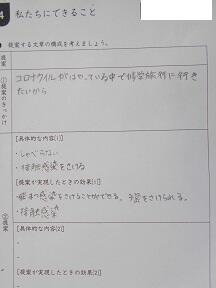 4 私たちにできること
提案する文章の構成を考えましょう。
提案
①提案のきっかけ
コロナウイルスがはやっている中で修学旅行に行き
たいから
②提案
[具体的な内容(1)]
・しゃべらない
・接触感染をさける
[提案が実現したときの効果(1)]
・飛まつ感染をさけることができる。
・接触感染
[具体的な内容(2)]
・
・
[提案が実現したときの効果(2)]